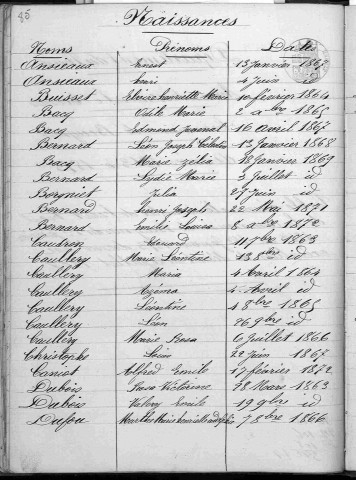 85
Naissances
Noms Prénoms Dates
Ansieaux Ernest 13 Janvier 1867
Ansieaux Henri 1 Juin id
Buisset Elvire henriette Marie 10 février 1864
Bacq Odile Marie 2 abre 1865
Bacq Edmond Juvenal 16 avril 1867
Bernard Léon Joseph 13 Janvier 1868
Bacq Marie Zélia 18 Janvier 1869
Bernard Lydie Marie 3 Juillet id
Borgniet Julia 27 Juin id
Bernard Henri Joseph 22 Mai 1871
Bernard Emilie Louise 8 abre 1872
Caudron Edouard 11 7bre 1863
Caullery Marie Léontine 13 8bre id
Caullery Maria 4 Avril 1864
Caullery Azéma 4 Avril id
Caullery Léontine 4 8bre 1865
Caullery Léon 26 9bre id
Caullery Marie Rosa 6 Juillet 1866
Christophe Louis 22 Juin 1867
Caniot Alfred Emile 17 février 1872
Dubois Rosa Victorine 28 Mars 1863
Dubois Valery Emile 19 9bre id
Dufou Marthe Marie henriette 7 8bre 1866